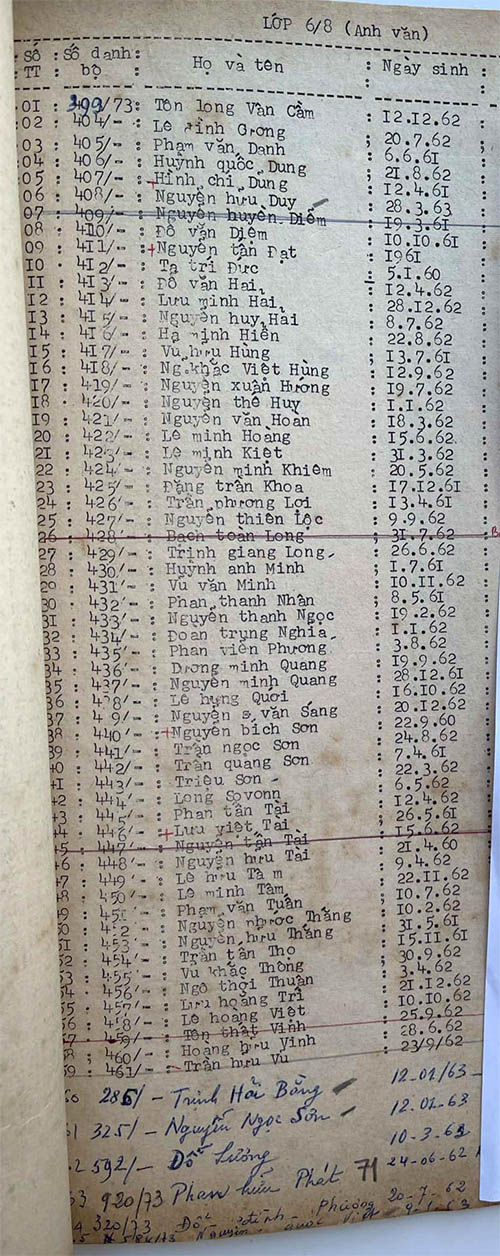 LỚP 6/8 (Anh văn)
Số TT : Số danh bộ : Họ và tên : Ngày sinh
01 : 399/73: Tôn long Vân Cầm : 12.12.62
02 : 404/- : Lê đình Gương : 20.7.62
03 : 405/- : Phạm văn Danh : 6.6.61
04 : 406/- : Huỳnh quốc Dung : 21.8.62
05 : 407/- : Hình chí Dung : 12.4.61
06 : 408/- : Nguyễn hưu Duy : 28.3.63
07 : 409/- : Nguyễn huyền Diễm : 19.3.61
08 : 410/- : Đỗ văn Diệm : 10.10.61
09 : 411/- : Nguyễn tấn Đạt : 1961
10 : 412/- : Tạ trí Đức : 5.1.60
11 : 413/- : Đỗ văn Hai : 12.4.62
12 : 414/- : Lưu minh Hải : 28.12.62
13 : 415/- : Nguyễn huy Hải : 8.7.62
14 : 416/- : Hạ minh Hiền : 22.8.62
15 : 417/- : Vu hưu Hùng : 13.7.61
16 : 418/- : Ng.khắc Việt Hùng : 12.9.62
17 : 419/- : Nguyễn xuân Hương : 19.7.62
18 : 420/- : Nguyễn thế Huy : 1.1.62
19 : 421/- : Nguyễn văn Hoàn : 18.3.62
20 : 422/- : Lê minh Hoang : 15.6.62
21 : 423/- : Lê minh Kiệt : 31.3.62
22 : 424/- : Nguyễn minh Khiêm : 20.5.62
23 : 425/- : Đặng trần Khoa : 17.12.61
24 : 426/- : Trần phương Lợi : 13.4.61
25 : 427/- : Nguyễn thiên Lộc : 9.9.62
26 : 428/- : Bạch toàn Long : 31.7.62
27 : 429/- : Trịnh giang Long : 26.6.62
28 : 430/- : Huỳnh anh Minh : 1.7.61
29 : 431/- : Vu văn Minh : 10.11.62
30 : 432/- : Phan thanh Nhân : 8.5.61
31 : 433/- : Nguyễn thanh Ngọc : 19.2.62
32 : 434/- : Đoan trung Nghĩa : 1.1.62
33 : 435/- : Phan viên Phương : 3.8.62
34 : 436/- : Dương minh Quang : 19.9.62
35 : 437/- : Nguyễn minh Quang : 28.12.61
36 : 438/- : Lê hưng Quơi : 16.10.62
37 : 439/- : Nguyễn văn Sáng : 20.12.62
38 : 440/- : Nguyễn bích Sơn : 22.9.60
39 : 441/- : Trần ngọc Sơn : 24.8.62
40 : 442/- : Trần quang Sơn : 7.4.61
41 : 443/- : Triệu Sơn : 22.3.62
42 : 444/- : Long Sovonn : 6.5.62
43 : 445/- : Phan tấn Tài : 12.4.62
44 : 446/- : Lưu việt Tài : 26.5.61
45 : 447/- : Nguyễn tấn Tài : 15.6.62
46 : 448/- : Nguyễn hưu Tài : 21.4.60
47 : 449/- : Lê hưu Tâm : 9.4.62
48 : 450/- : Lê minh Tâm : 22.11.62
49 : 451/- : Phạm văn Tuân : 10.7.62
50 : 452/- : Nguyễn phước Thắng : 10.2.62
51 : 453/- : Nguyễn hưu Thắng : 31.5.61
52 : 454/- : Trần tấn Thọ : 15.11.61
53 : 455/- : Vu khắc Thông : 30.9.62
54 : 456/- : Ngô thời Thuần : 3.4.62
55 : 457/- : Lưu hoàng Trí : 21.12.62
56 : 458/- : Lê hoàng Việt : 10.10.62
57 : 459/- : Tôn thất Vinh : 25.9.62
58 : 460/- : Hoàng hưu Vinh : 28.6.62
59 : 461/- : Trần hưu Vu : 23/9/62
60 286/- Trịnh Hải Bằng 12-01/63
61 325/- Nguyễn Ngọc Sơn 12.01-63
62 592/- Đỗ Lương 10-3.62
63 920/73 Phan hữu Phát 71 24-06-62
320/73 Đỗ đình Phương 20-7-62